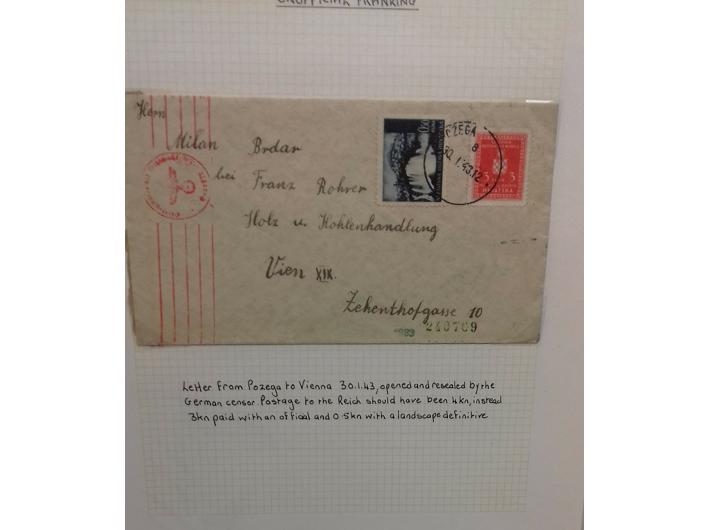 UNOFFICIAL FRANKING
Herrn
Milan Brdar
bei Franz Rohrer
Holz u. Kohlenhandlung
Wien XIX.
Zehenthofgasse 10
240709
POZEGA
30.1.43.12
0.50
3 3
HRVATSKA
Letter From Pozega to Vienna 30.1.43, opened and resealed by the
German censor Postage to the Reich should have been 4kn, instead
3kn paid with an official and 0.5kn with a landscape definitive